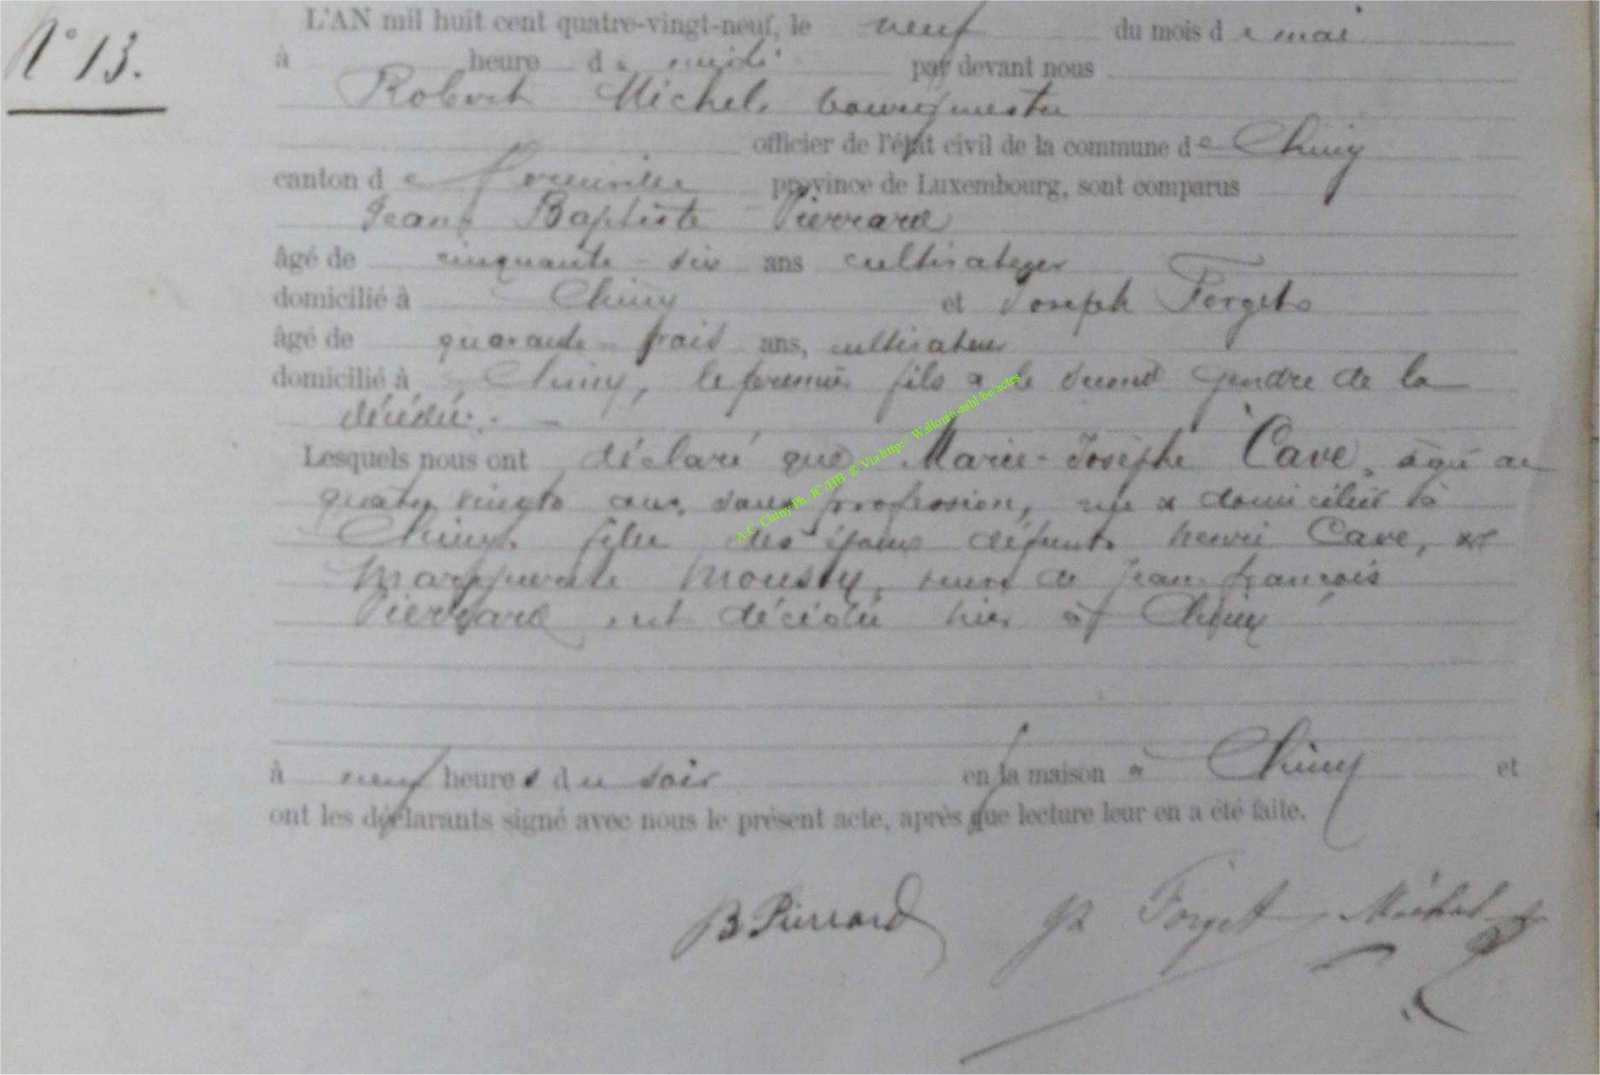 N° 13.
L'AN mil huit cent quatre-vingt-neuf, le neuf du mois de mai
à heure de midi par devant nous
Robert Michel, bourgmestre
officier de l'état civil de la commune de Chiny
canton de Florenville province de Luxembourg, sont comparus
Jean Baptiste Pierrard
âgé de cinquante-six ans cultivateur
domicilié à Chiny et Joseph Forget
âgé de quarante-trois ans, cultivateur
domicilié à Chiny, le premier fils & le second gendre de la
décédée.
Lesquels nous ont déclaré que Marie-Josèphe Cave, âgée de
quatre vingts ans, sans profession, née & domiciliée à
Chiny, fille des époux défunts henri Cave, et
Marguerite Mousty, veuve de Jean françois
Pierrard est décédée hier à Chiny
à neuf heures du soir en la maison à Chiny et
ont les déclarants signé avec nous le présent acte, après que lecture leur en a été faite.
B Pierrard Forget Michel
A.C. Chiny Ph. JC/HB & Via http: